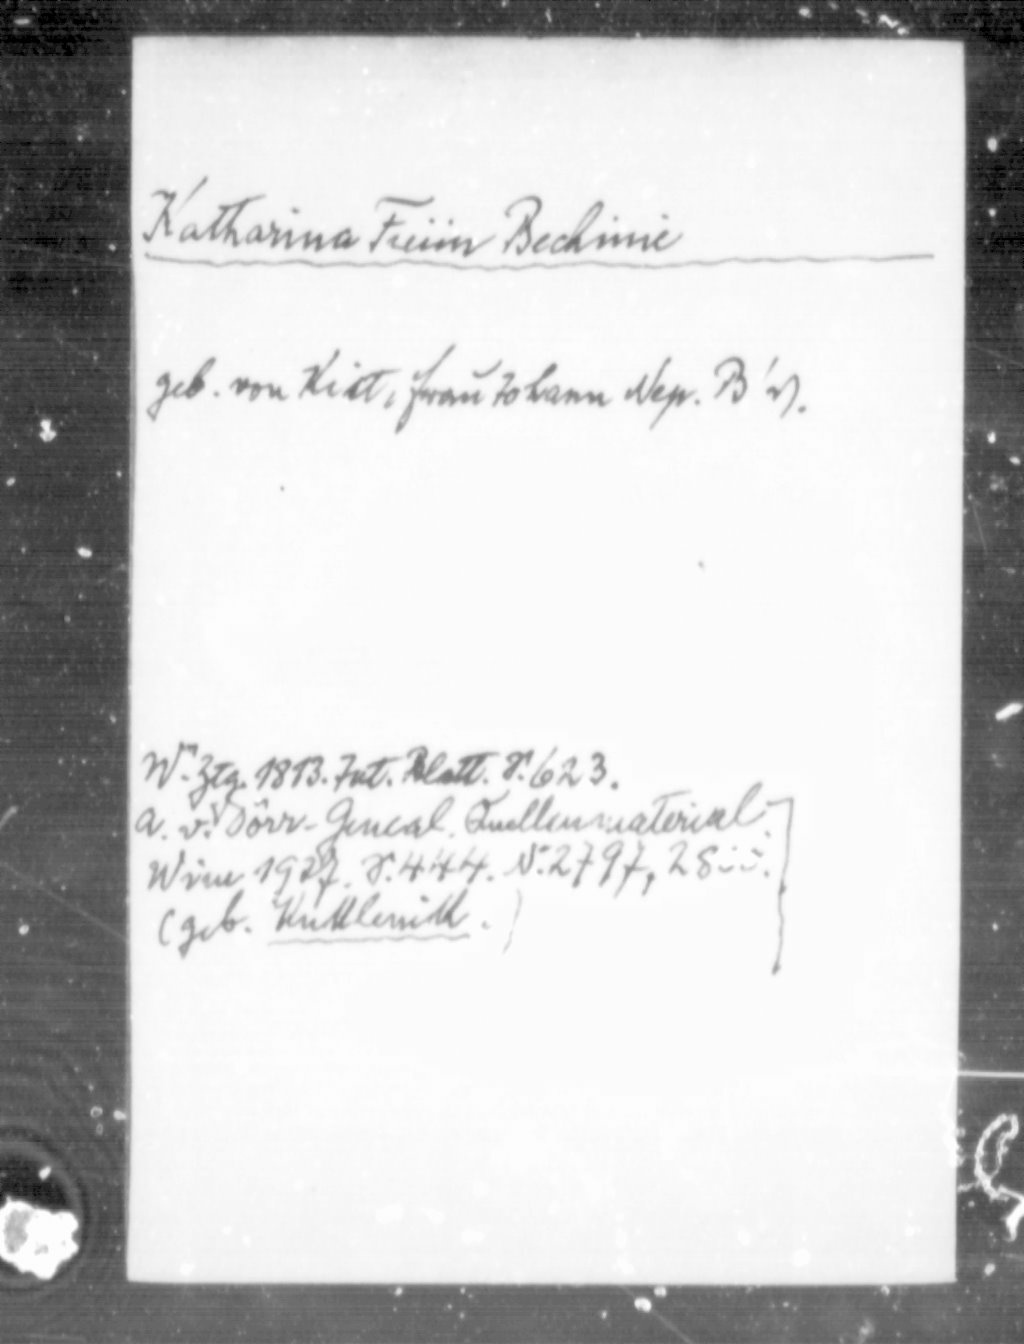 Katharina Freiin Bechinie
geb. von Kitt, Frau Johann Nep. B's.
Wr. Ztg. 1813. Int. Blatt. S. 623.
A. v. Dörr - Geneal. Quellenmaterial.
Wien 1927. S. 444. Nr. 2797, 28
(geb. .)